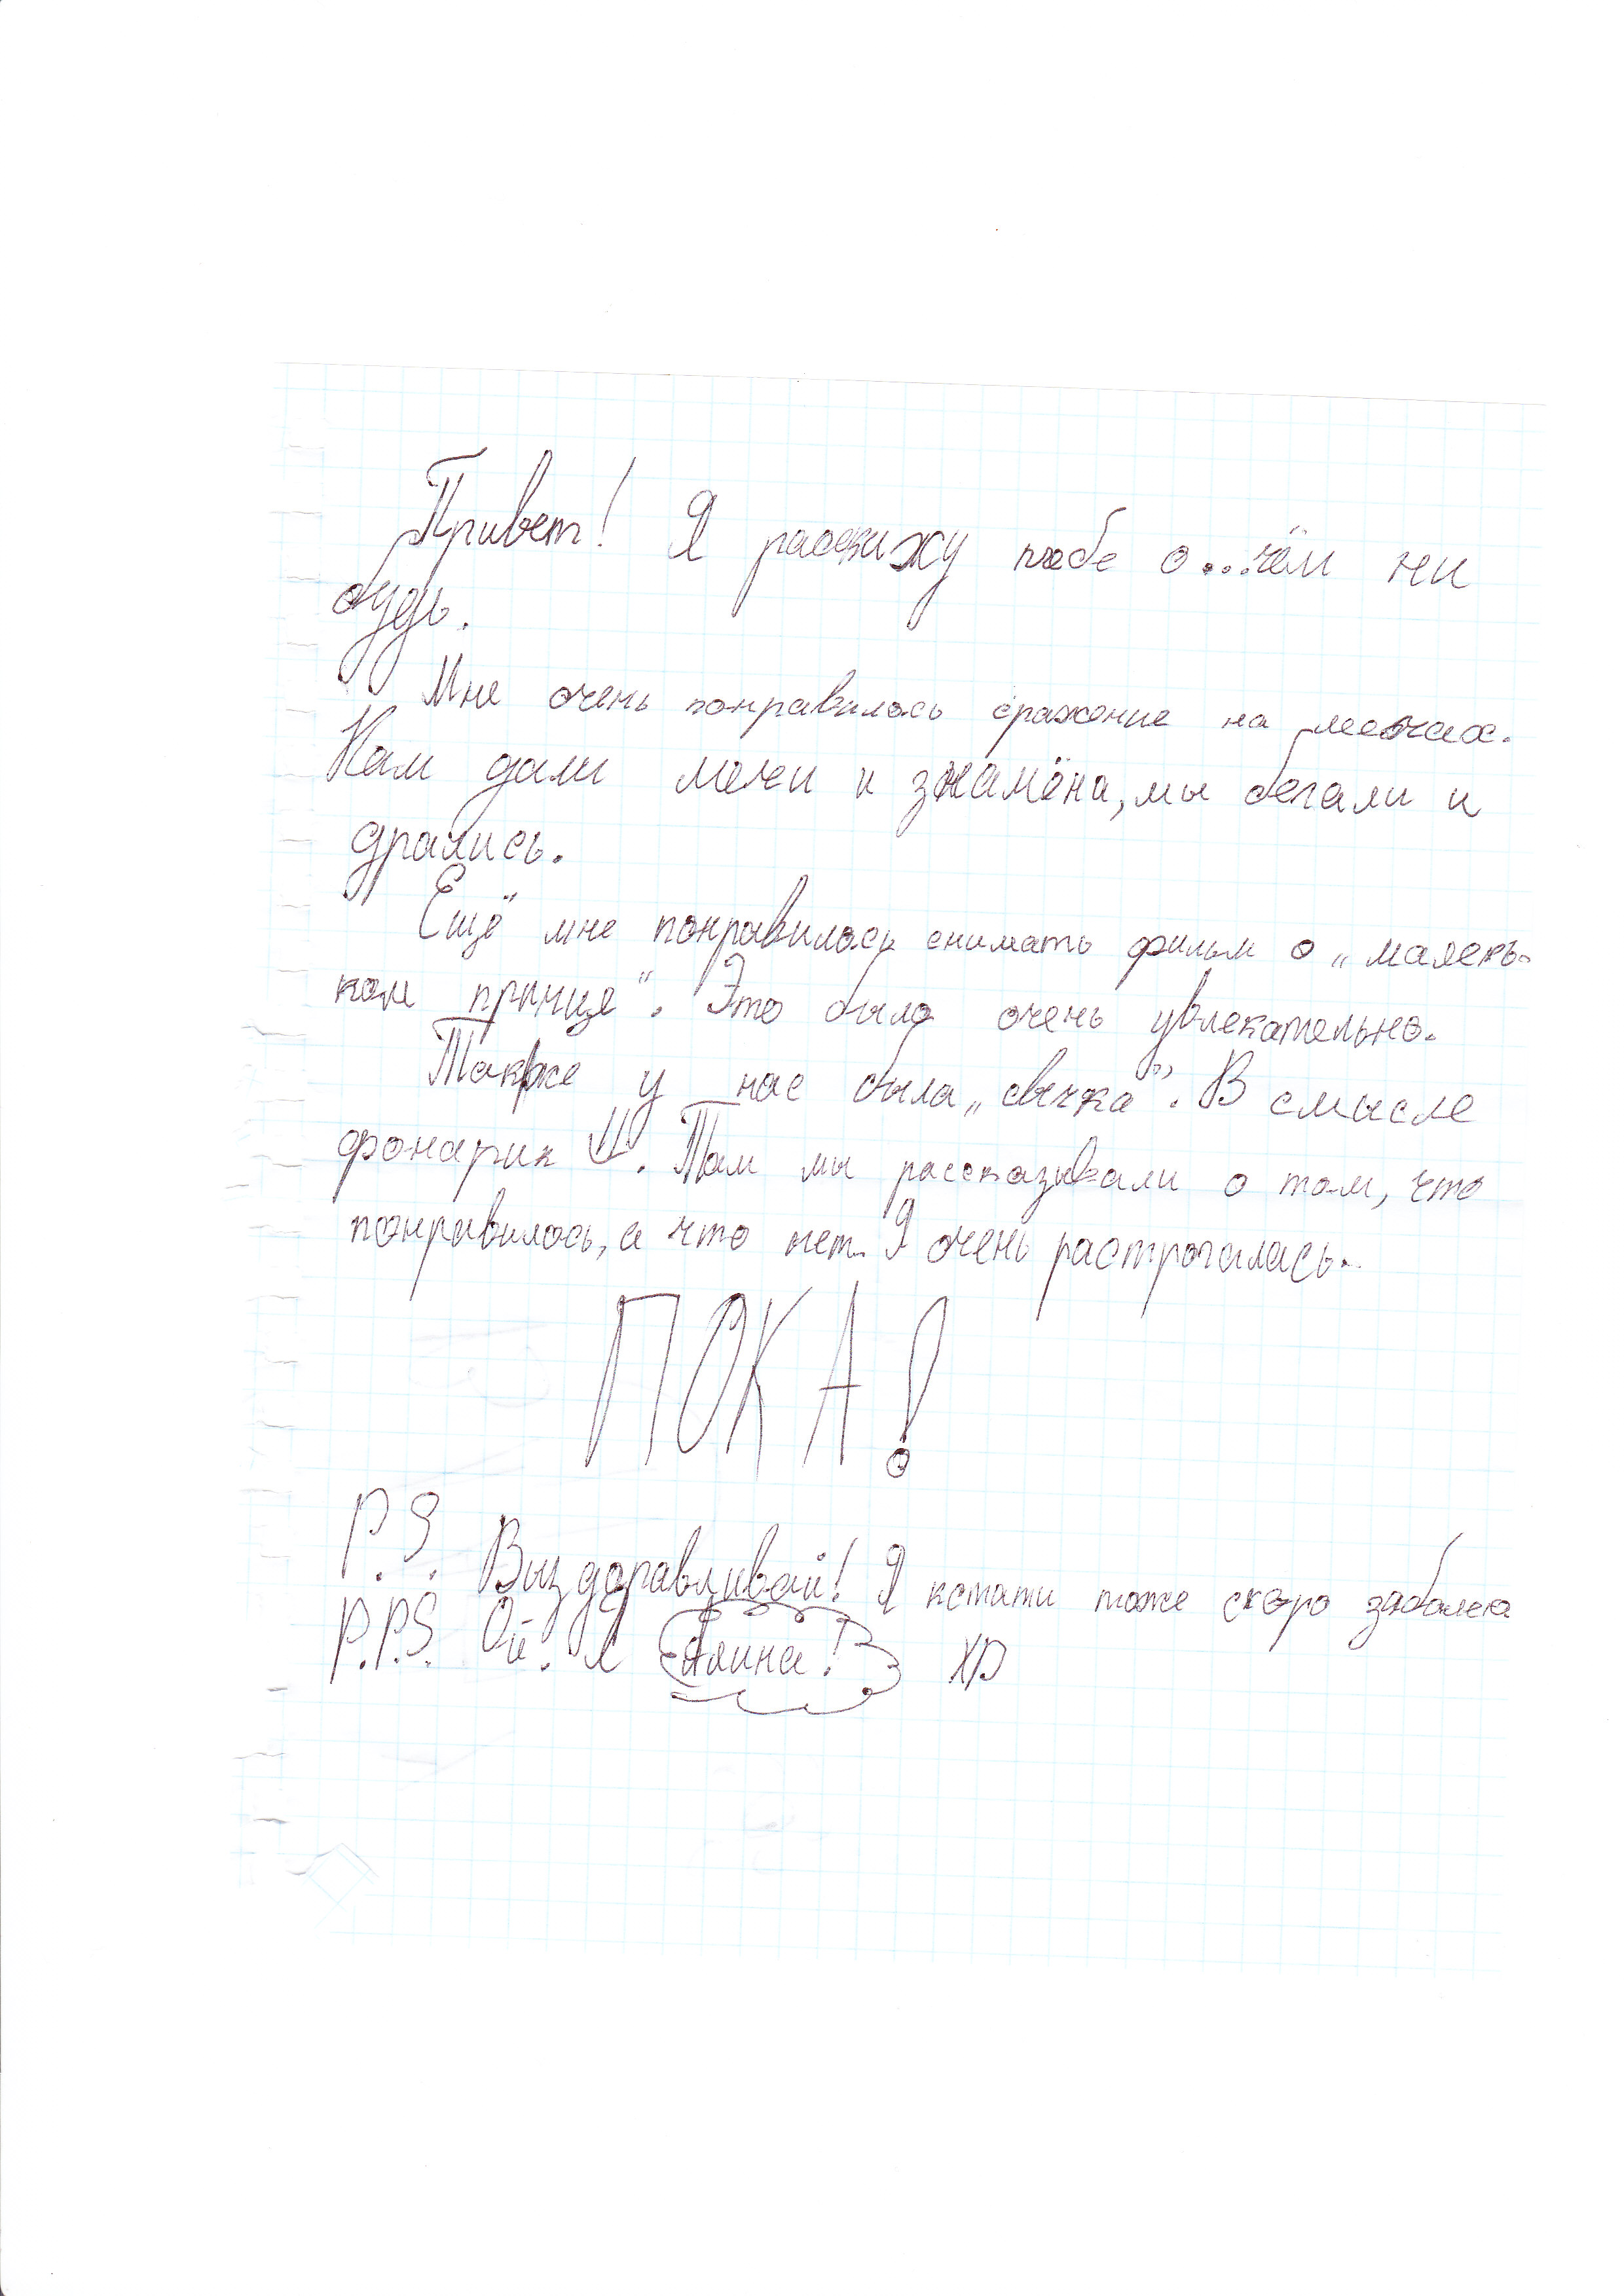 Привет! Я расскажу тебе о...чём ни
будь.
Мне очень понравилось сражение на мечах.
Нам дали мечи и знамёна, мы бегали и
дрались.
Ещё мне понравилось снимать фильм о „малень-
ком принце“. Это было очень увлекательно.
Также у нас была „свечка“. В смысле
фонарик. Там мы рассказывали о том, что
понравилось, а что нет. Я очень растрогалась.
ПОКА!
P.S. Выздоравливай! Я кстати тоже скоро заболею
P.P.S. Ой. Я Алина! XD